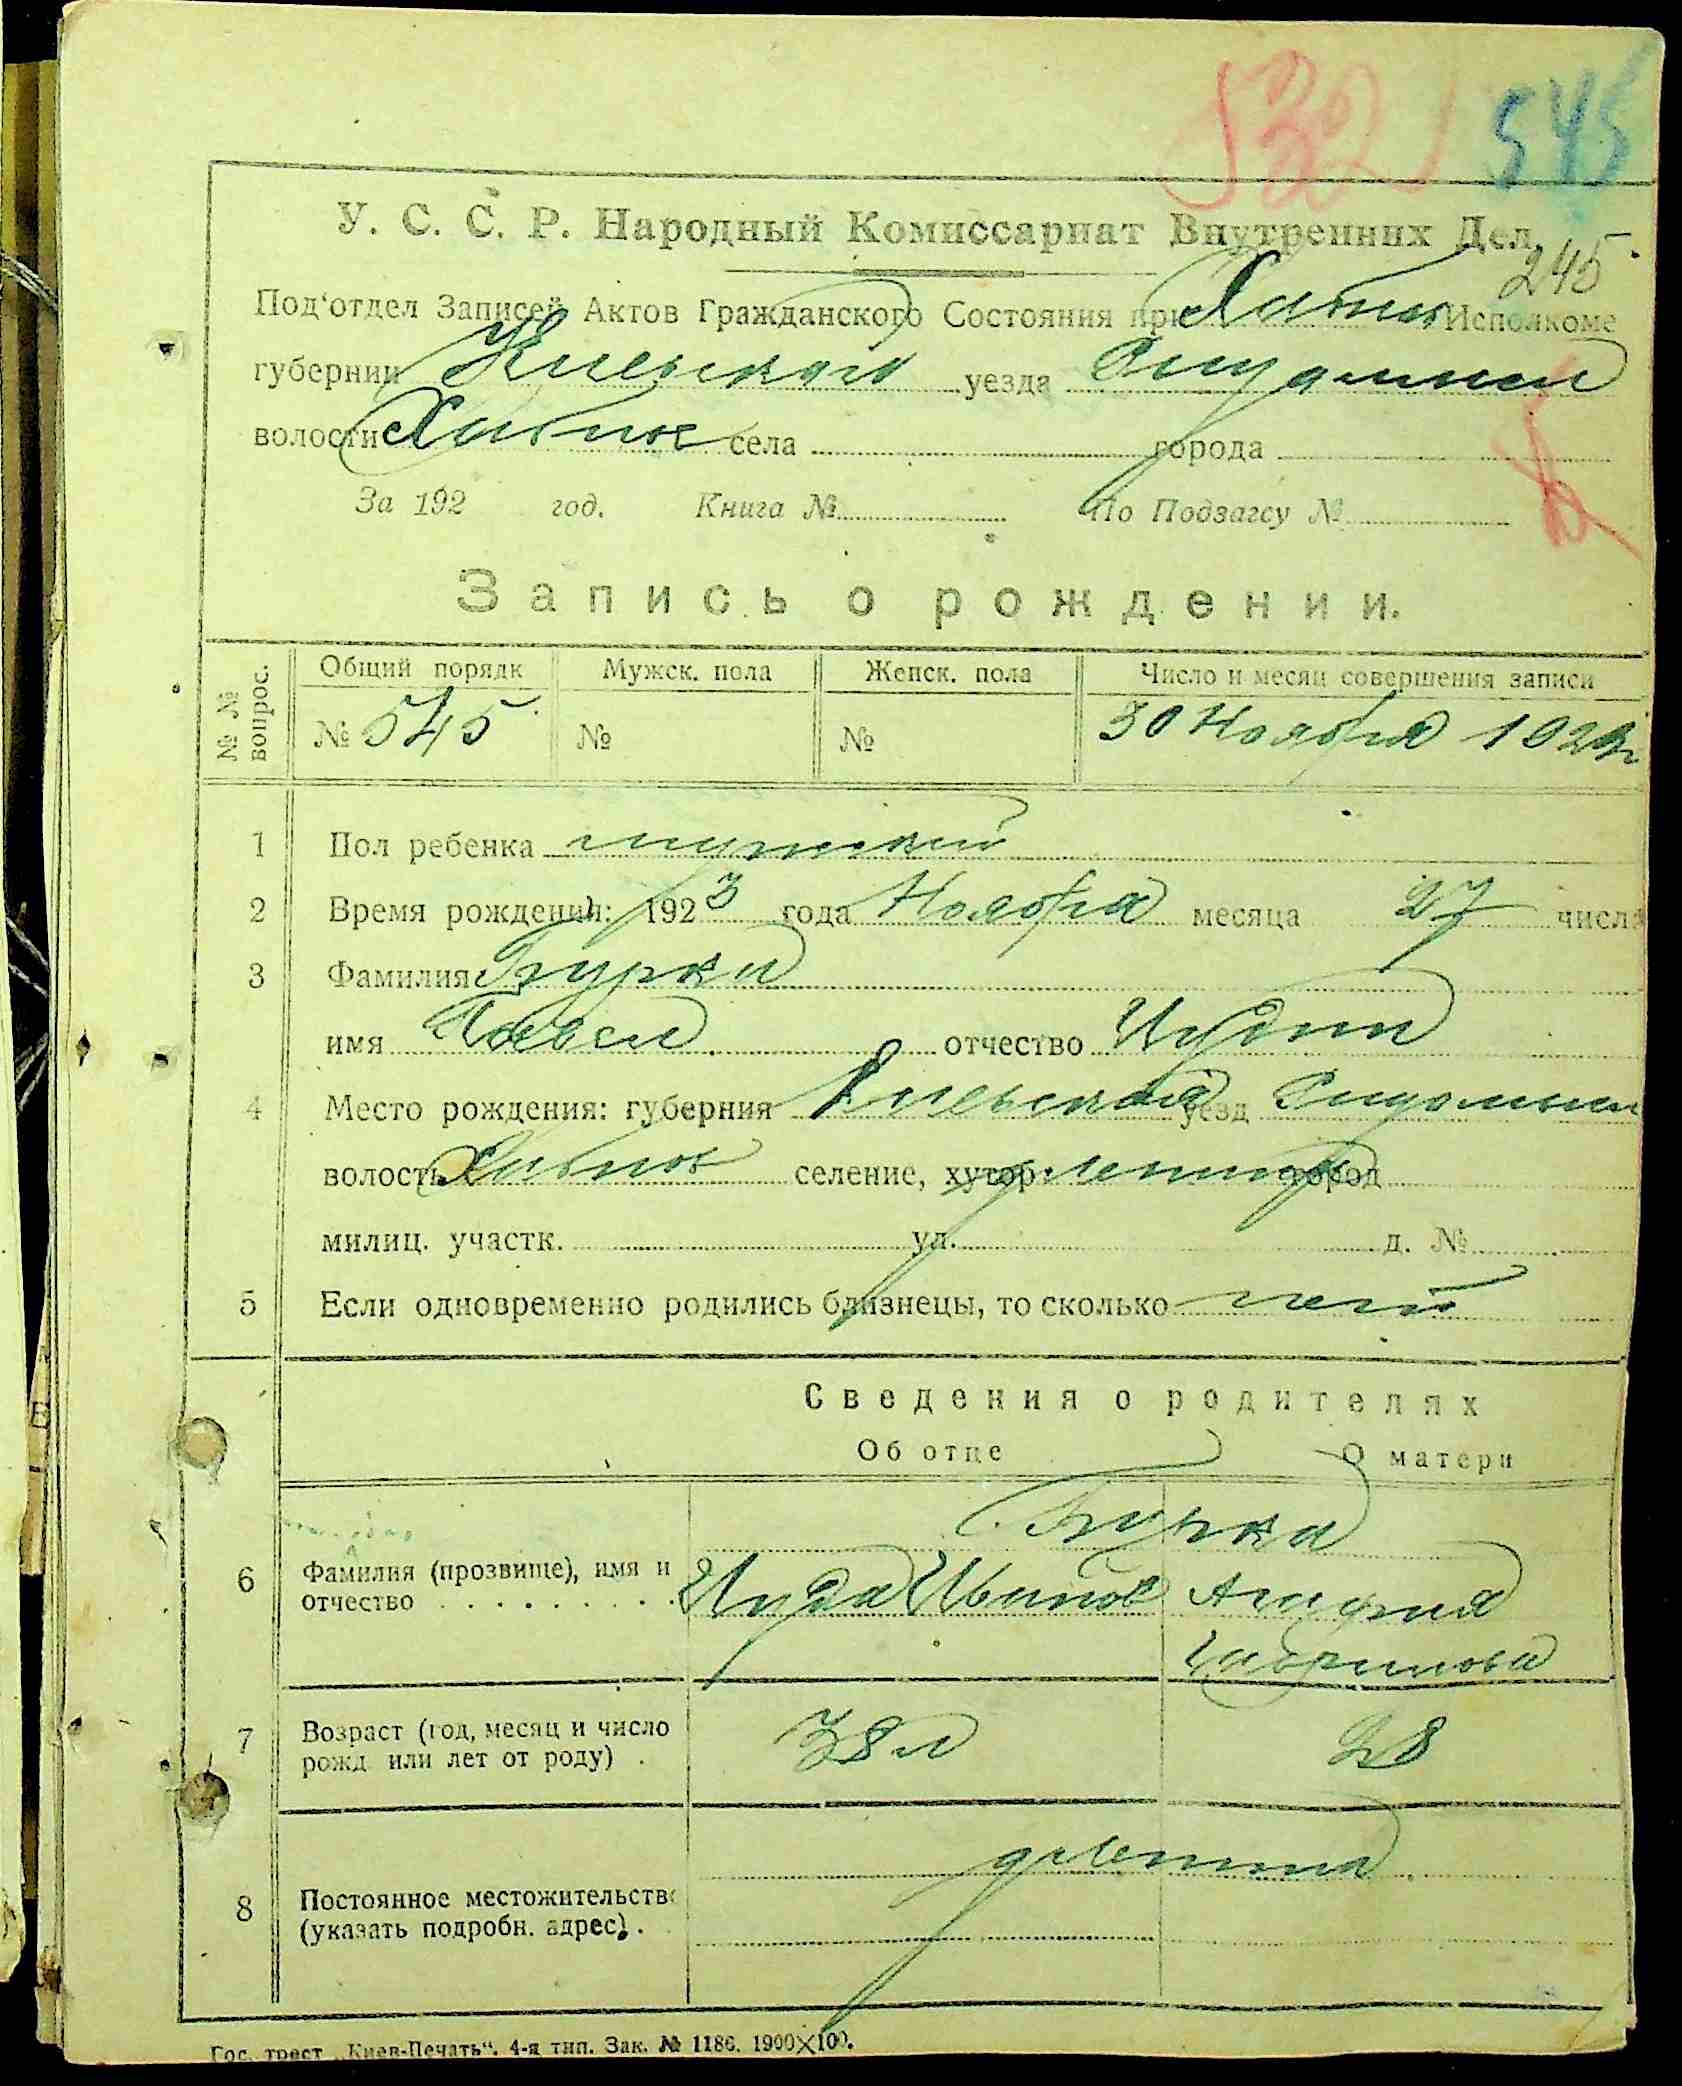 532 545
У. С. С. Р. Народный Комиссариат Внутренних Дел.
245
Под'отдел Записей Актов Гражданского Состояния при Хабном Исполкоме
губернии Киевской уезда
волости Хабное села города
За 192 год. Книга № По Подзагсу №
Запись о рождении.
№№ вопрос. Общий порядк Мужск. пола Женск. пола Число и месяц совершения записи
№ 545 № № 30 Ноября 192
1 Пол ребенка мужской
2 Время рождения: 1923 года Ноября месяца 27 числа
3 Фамилия Бурка
имя Павел отчество Иудин
4 Место рождения: губерния Киевская уезд
волость Хабное селение, хутор город
милиц. участк. ул. д. №
5 Если одновременно родились близнецы, то сколько
Сведения о родителях
Об отце О матери
Бурка
6 Фамилия (прозвище), имя и отчество . . . . . . . . . Иуда Иванов Агафия
Гаврилова
7 Возраст (год, месяц и число рожд. или лет от роду) . 38 л 28
8 Постоянное местожительство (указать подробн. адрес). .
Гос. трест „Киев-Печать“. 4-я тип. Зак. № 1186. 1900×100.